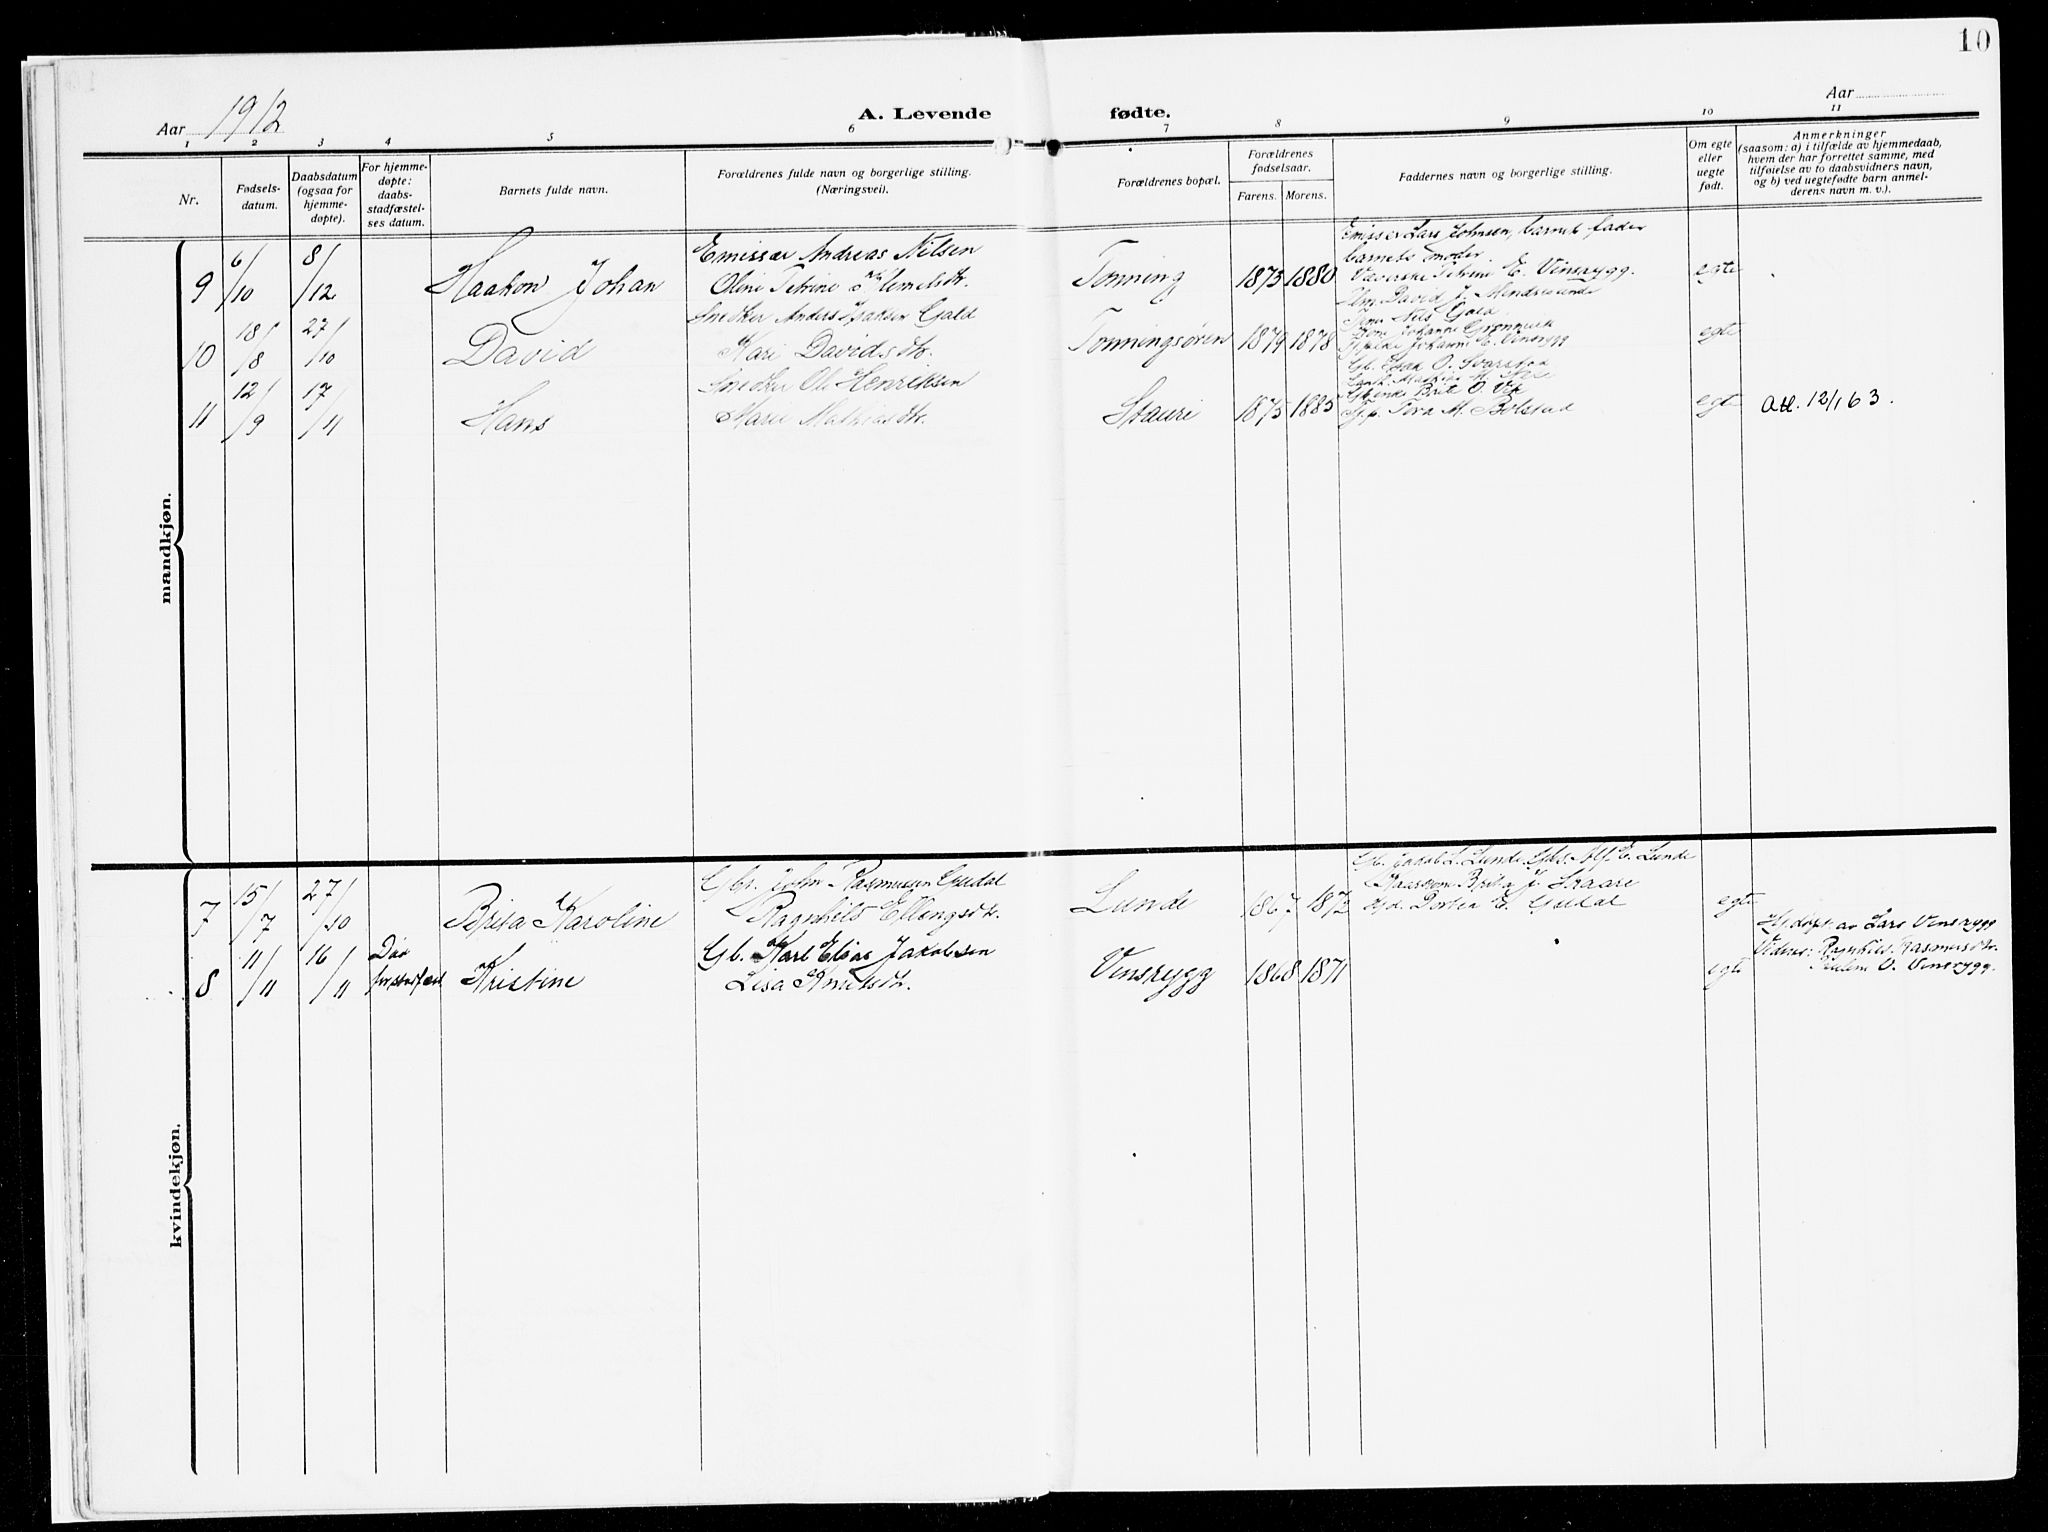 10
Aar 1912
A. Levende fødte.
Aar
1 2 3 4 5 6 7 8 9 10 11
Nr.
Fødsels-
datum.
Daabsdatum
(ogsaa for
hjemme-
døpte).
For hjemme-
døpte:
daabs-
stadfæstel-
ses datum.
Barnets fulde navn.
Forældrenes fulde navn og borgerlige stilling.
(Næringsvei).
Forældrenes bopæl.
Forældrenes
fødselsaar.
Farens. Morens.
Faddernes navn og borgerlige stilling.
Om egte
eller
uegte
født.
Anmerkninger
(saasom: a) i tilfælde av hjemmedaab,
hvem der har forrettet samme, med
tilføielse av to daabsvidners navn,
og b) ved uegtefødte barn anmel-
derens navn m. v.).
mandkjøn.
9 6/10 8/12 Haakon Johan
Emissær Andreas Nilsen
Oline Petrine
Tonning 1873 1880
Emissær Lars Johnsen, barnets fader
barnets moder.
Væverske Petrine E. Vinsrygg.
Um. David J.
egte
10 18/8 27/10 David
Snedker Anders Isaksen Gald
Kari Davidsdtr.
Tonningsøren 1879 1878
Nils Gald
Johanne
Johanne E. Vinsrygg
egte
11 12/9 17/11 Hans
Snedker Ole Henriksen
Marie Mathiasdtr.
Staure 1875 1885
Gb. Isak O. Svarstad
Mathias M.
Brite O. Vik
Tora M. Bolstad
egte
Att. 12/1 63.
kvindekjøn.
7 15/7 27/10 Brita Karoline
Gbr. John Rasmusen Gudal
Ragnhild Ellingsdtr.
Lunde 1867 1872
Gb. Jakob L. Lunde, Gbs. Alf E. Lunde
Brita J. Staare
Dortea E. Guddal
egte
8 11/11 16/11 Kristine
Gb. Karl Elias Jakobsen
Lisa Knutsdtr.
Vinsrygg 1868 1871
egte
Hj.døpt av Lars Vinsrygg
Vidner: Ragnhild Rasmusdtr.
O. Vinsrygg.